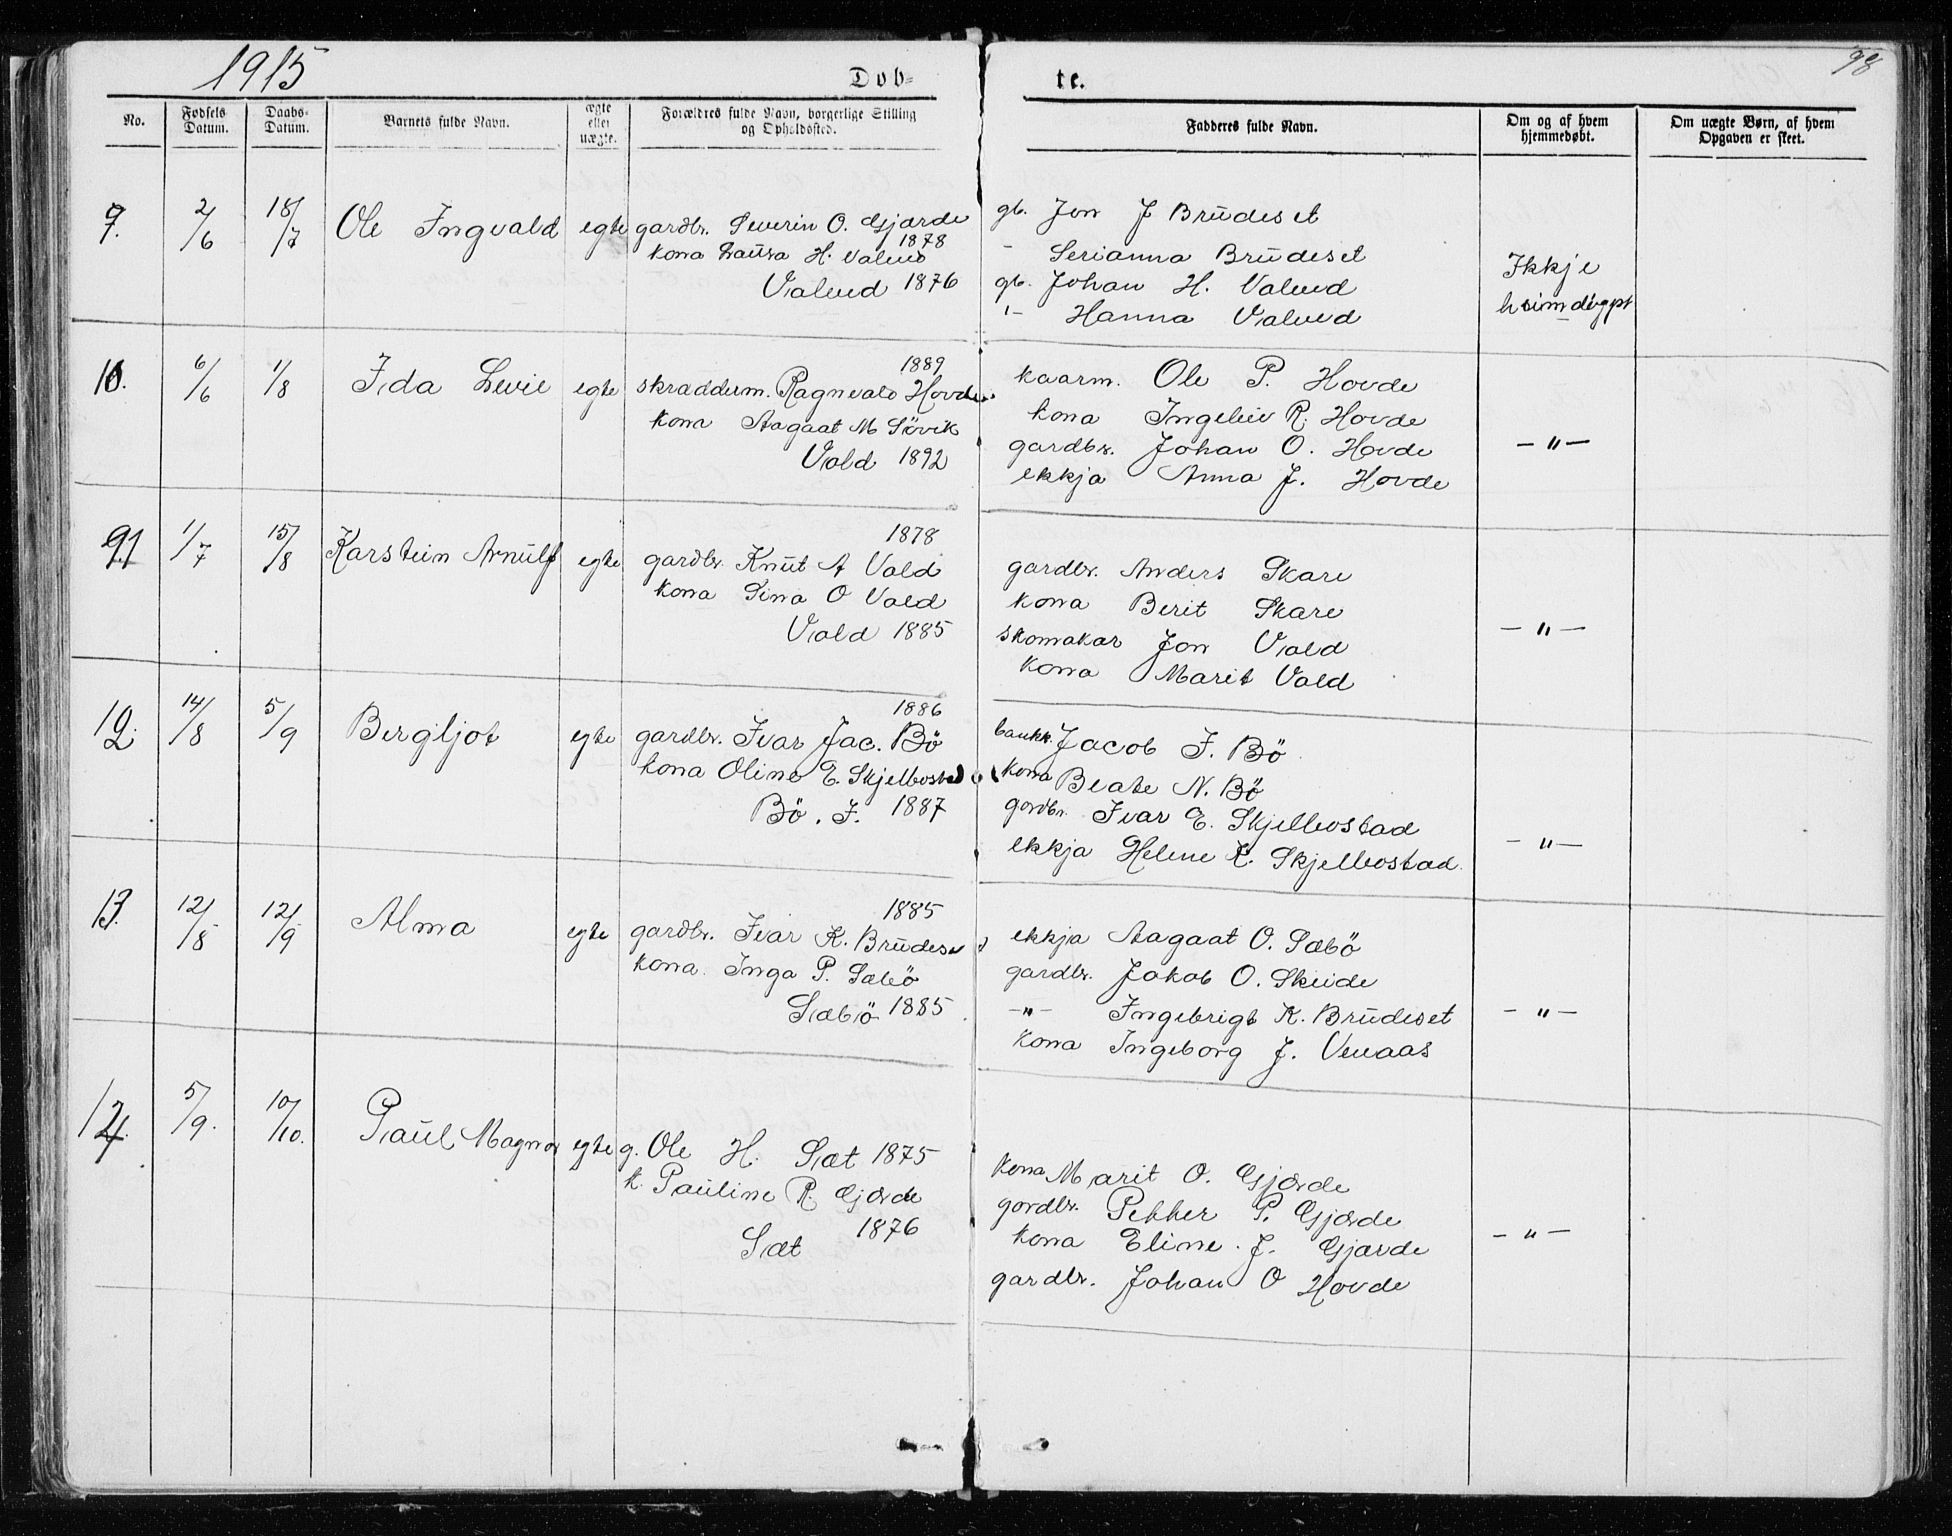 1915
98
Døb=
te.
No.
Fødsels Datum.
Daabs-Datum.
Barnets fulde Navn.
ægte eller uægte.
Forældres fulde Navn, borgerlige Stilling og Opholdssted.
Fadderes fulde Navn.
Om og af hvem hjemmedøbt.
Om uægte Børn, af hvem Opgaven er skeet.
9. 2/6 18/7 Ole Ingvald egte
gardbr. Severin O. Gjærde
1878
kona Laura H. Valved
Valved 1876
gb. Jon J Brüdeset
- Serianna Brüdeset
gb. Johan H. Valved
"- Hanna Valved
Ikkje
heimdøypt
10. 6/6 1/8 Ida Levie egte
1889
skræddum. Ragnvald Hovde
kona Aagaat M Søvik
Vold 1892
kaarm. Ole P. Hovde
kona Ingeleiv R. Hovde
gardbr. Johan O. Hovde
ekkja Anna J. Hovde
- " -
11 1/7 15/8 Karstein Arnülf egte
1878
gardbr. Knüt A Vold
kona Sina O Vold
Vold 1885
gardbr. Anders Skare
kona Berit Skare
skomakar Jon Vold
kona Marit Vold
- " -
12. 14/8 5/9 Bergljot egte
1886
gardbr. Ivar Jac. Bö
kona Oline E. Skjelbostad
Bö. I. 1887
bankk. Jacob I. Bö
kona Beate N. Bö
gardbr. Ivar E. Skjelbostad
ekkja Helene K. Skjelbostad
- " -
13. 12/8 12/9 Alma egte
1885
gardbr. Ivar K. Brüdeset
kona Inga P. Sæbö
Sæbö 1885
ekkja Aagaat O. Sæbö
gardbr. Jakob O. Skeide
- " - Ingebrigt K. Brüdeset
kona Ingeborg J. Venaas
- " -
14. 5/9. 10/10. Paül Magnar egte
g. Ole H. Sæt 1875
k. Pauline R. Gjærde
1876
Sæt
kona Marit O. Gjærde
gardbr. Petter P. Gjærde
kona Eline J. Gjærde
gardbr. Johan O Hovde
- " -